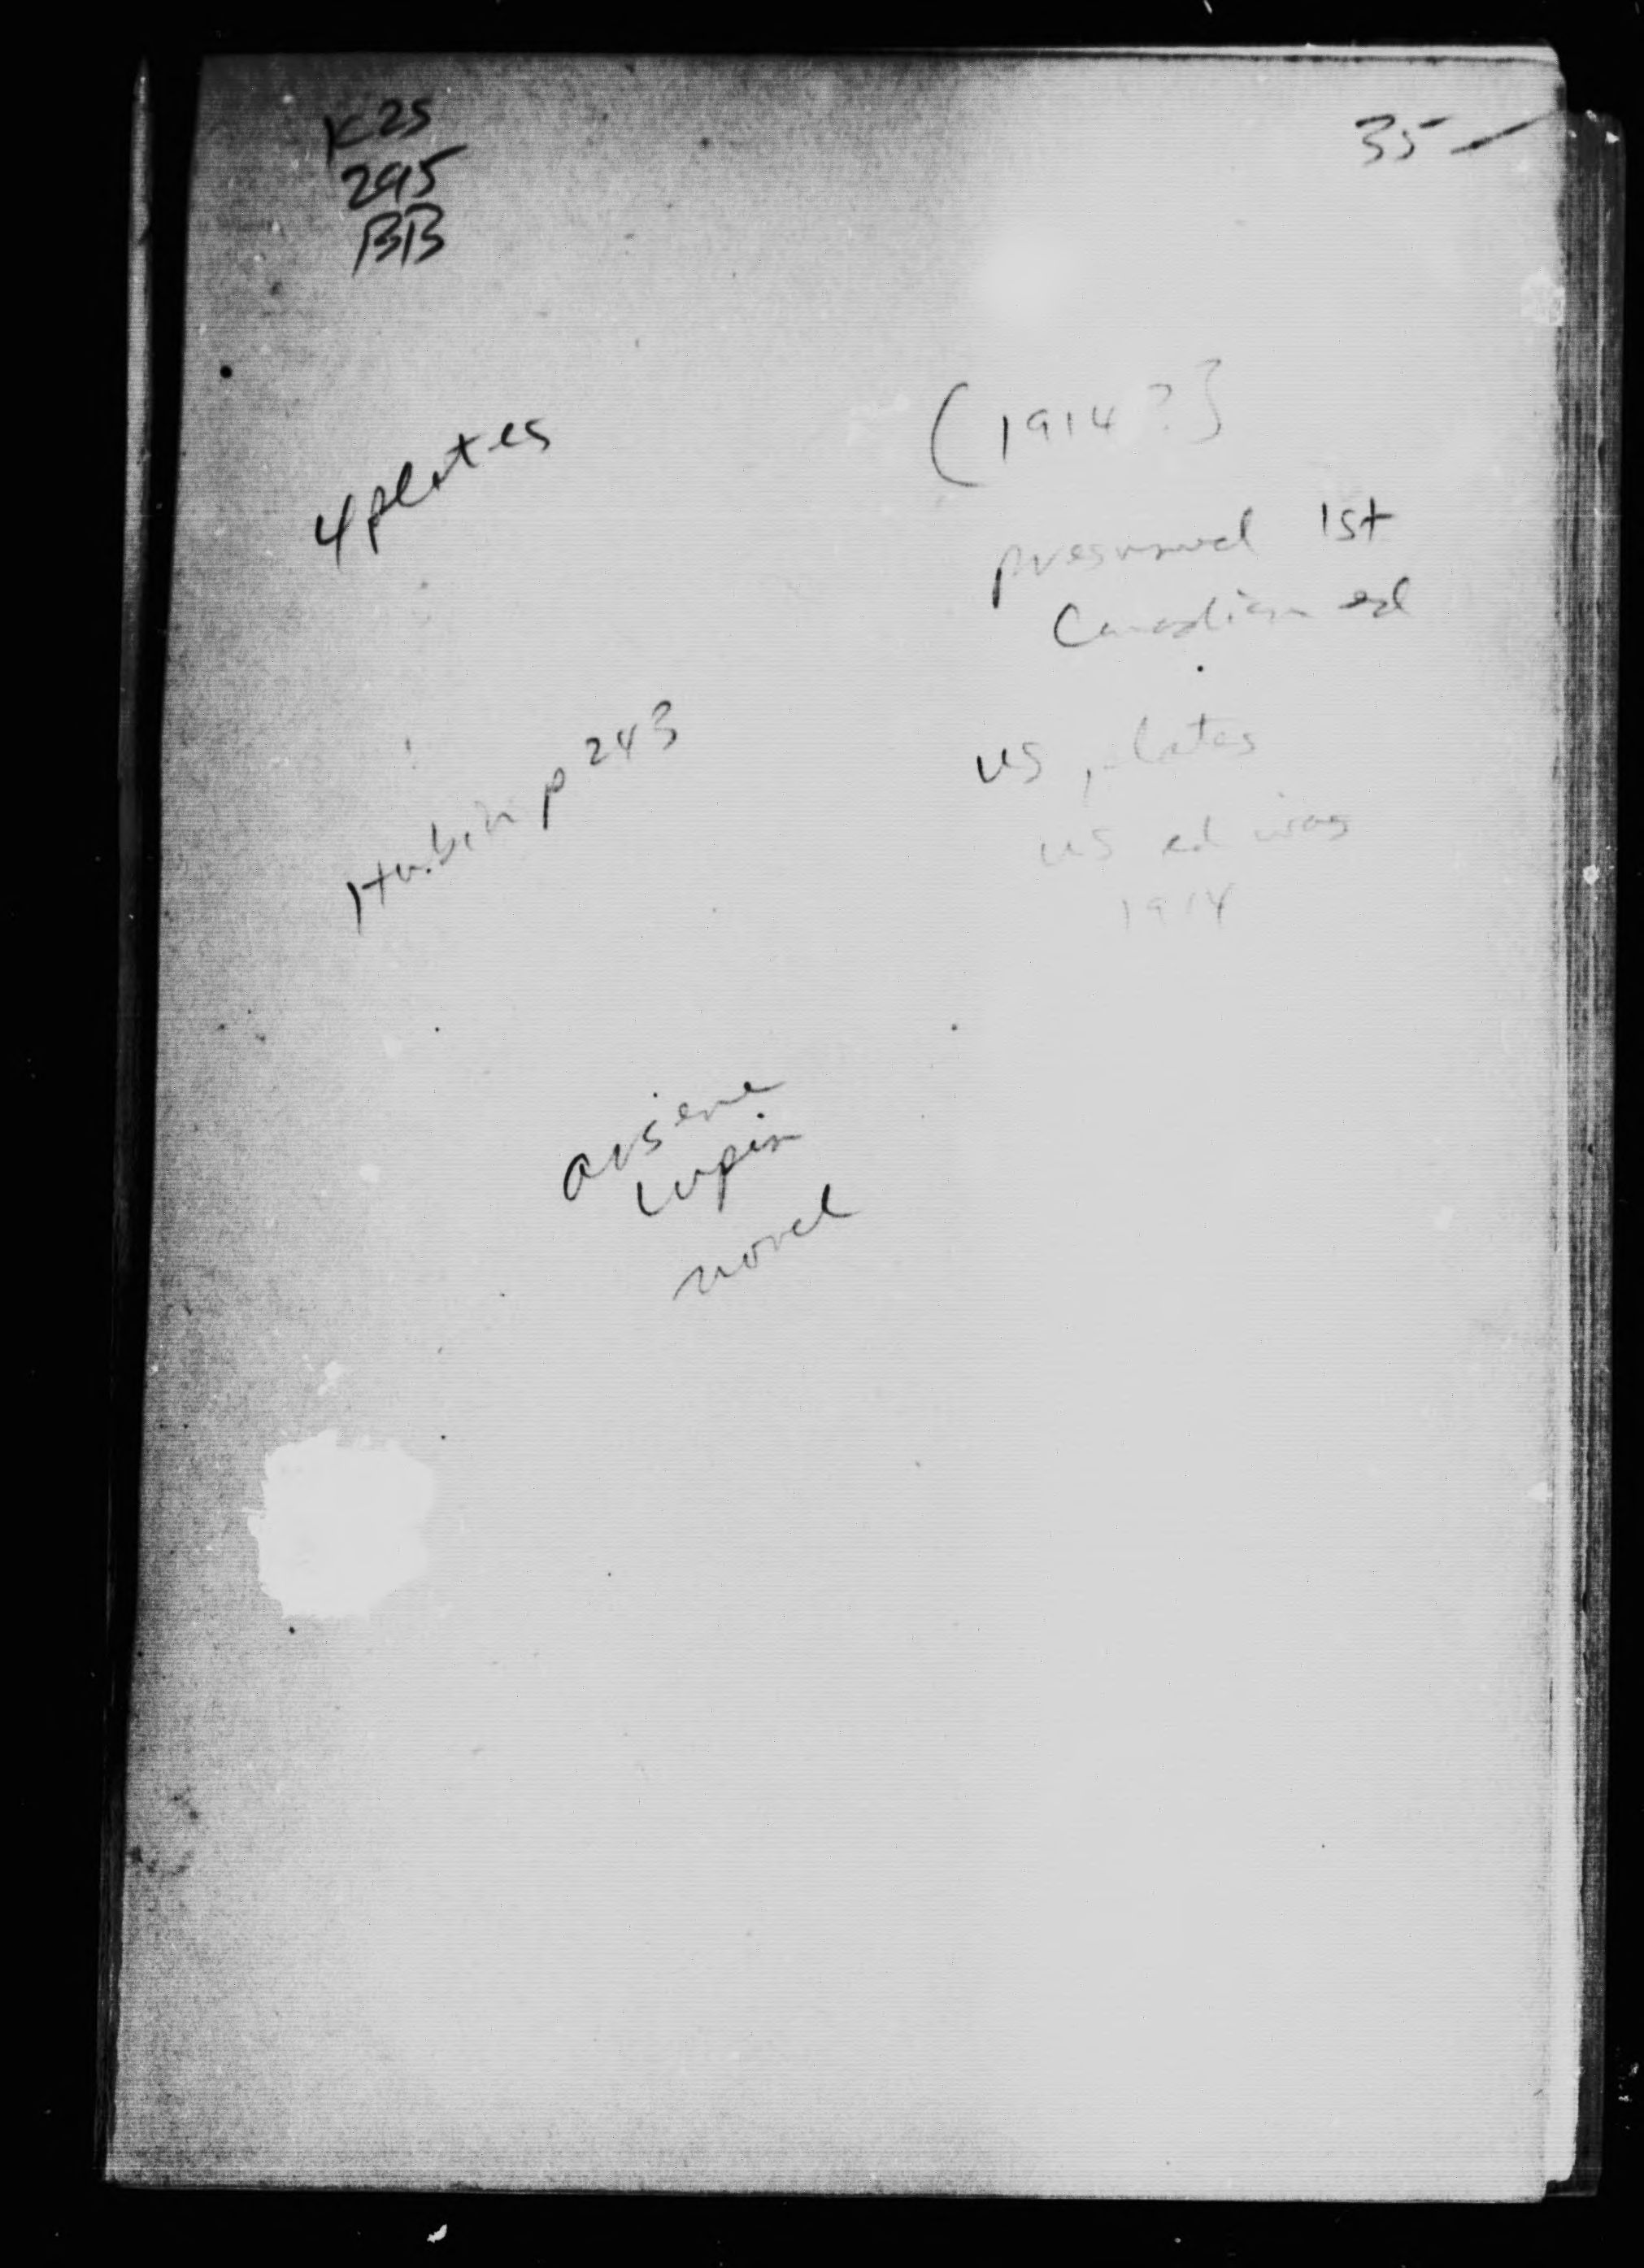 K25
295
BB
35-
4 plates
(1914?]
presumed 1st
Canadian ed
Hubin p 243
US plates
US ed was
1914
arsene
lupin
novel